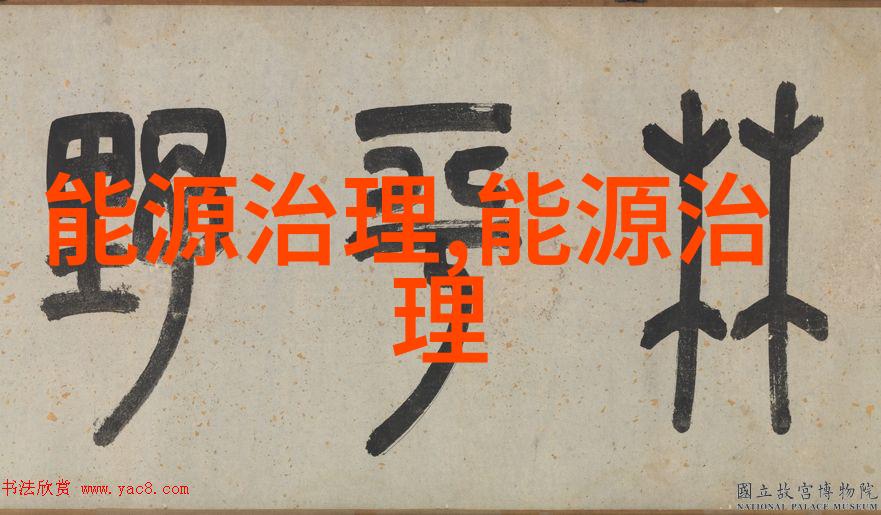 林平野
能源治理,能源治
理
书法欣赏 www.yac8.com
國立故宮博物院
NATIONAL PALACE MUSEUM